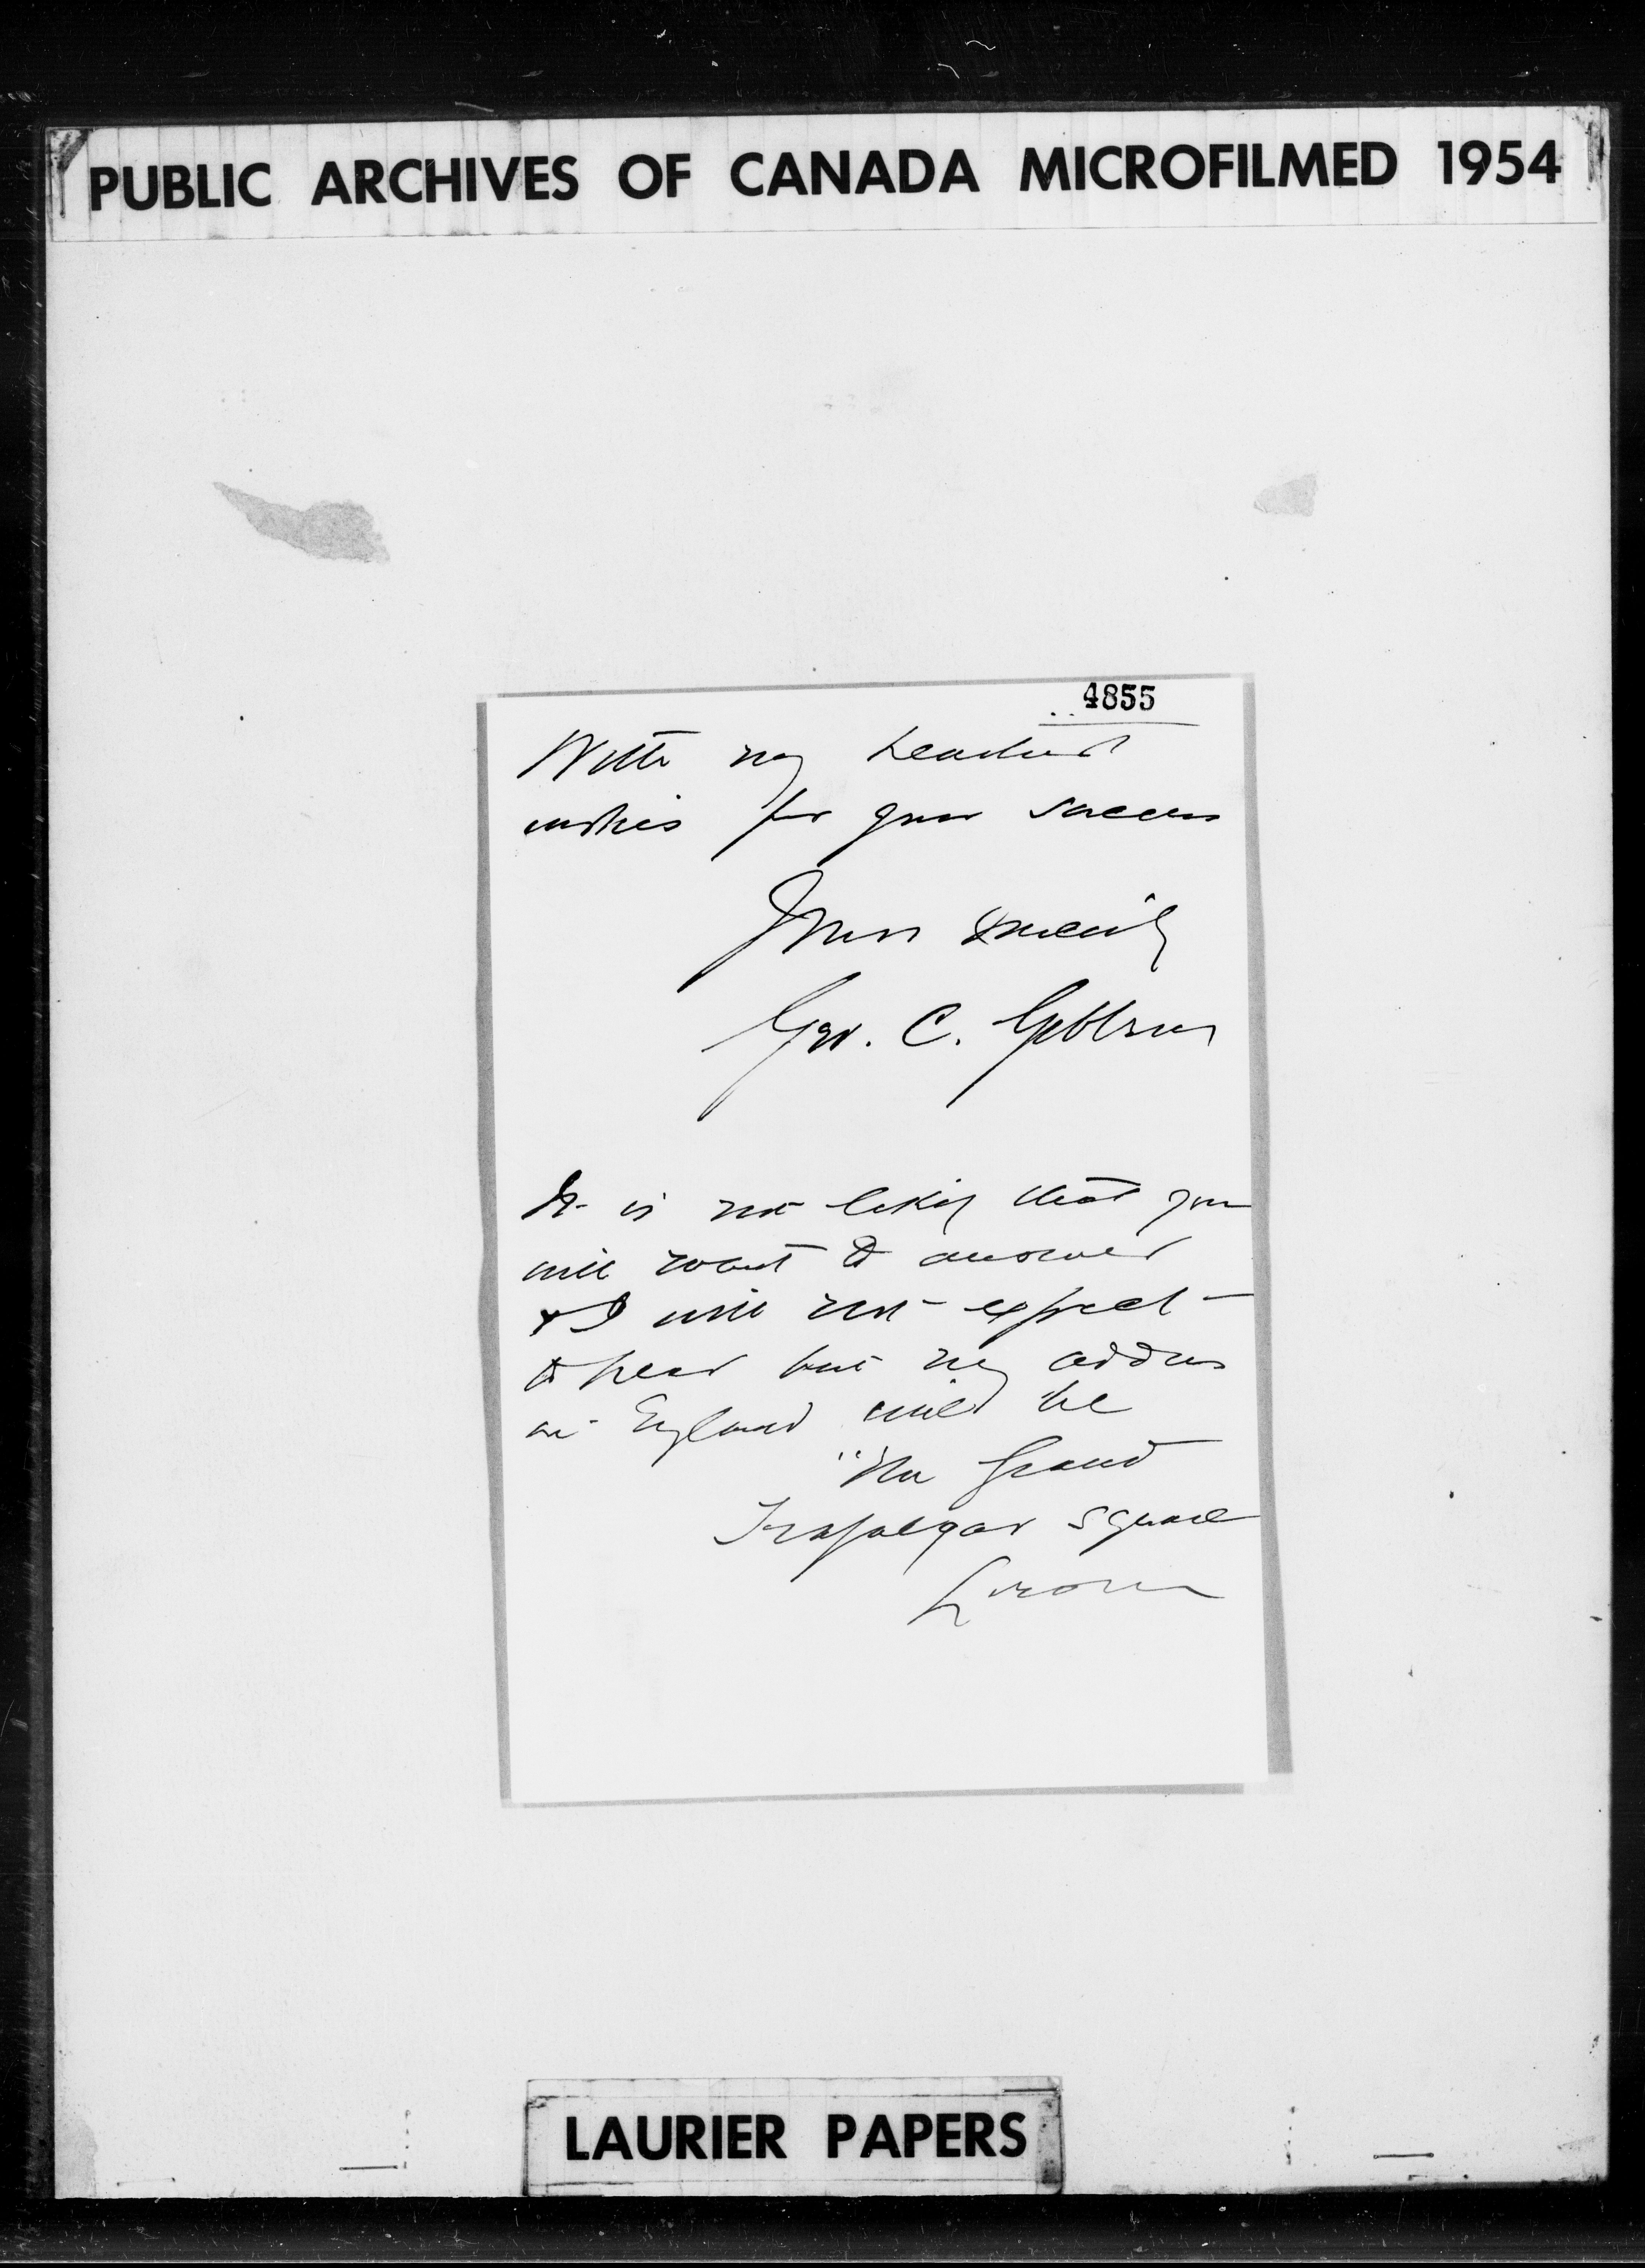 PUBLIC ARCHIVES OF CANADA MICROFILMED 1954
4855
With my heartiest
wishes for your success
Yours sincerely
Geo. C. Gibbons
It is not likely that you
will want to answer
& I will not expect
to hear but my address
in England will be
"The Grand
Trafalgar Square
London
LAURIER PAPERS